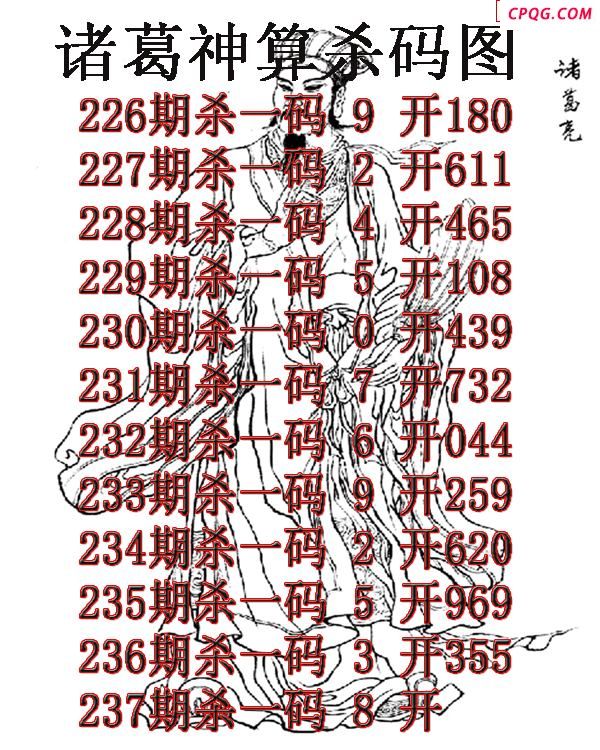 CPQG.COM
诸葛神算杀码图
诸葛亮
226期杀一码 9 开180
227期杀一码 2 开611
228期杀一码 4 开465
229期杀一码 5 开108
230期杀一码 0 开439
231期杀一码 7 开732
232期杀一码 6 开044
233期杀一码 9 开259
234期杀一码 2 开620
235期杀一码 5 开969
236期杀一码 3 开355
237期杀一码 8 开